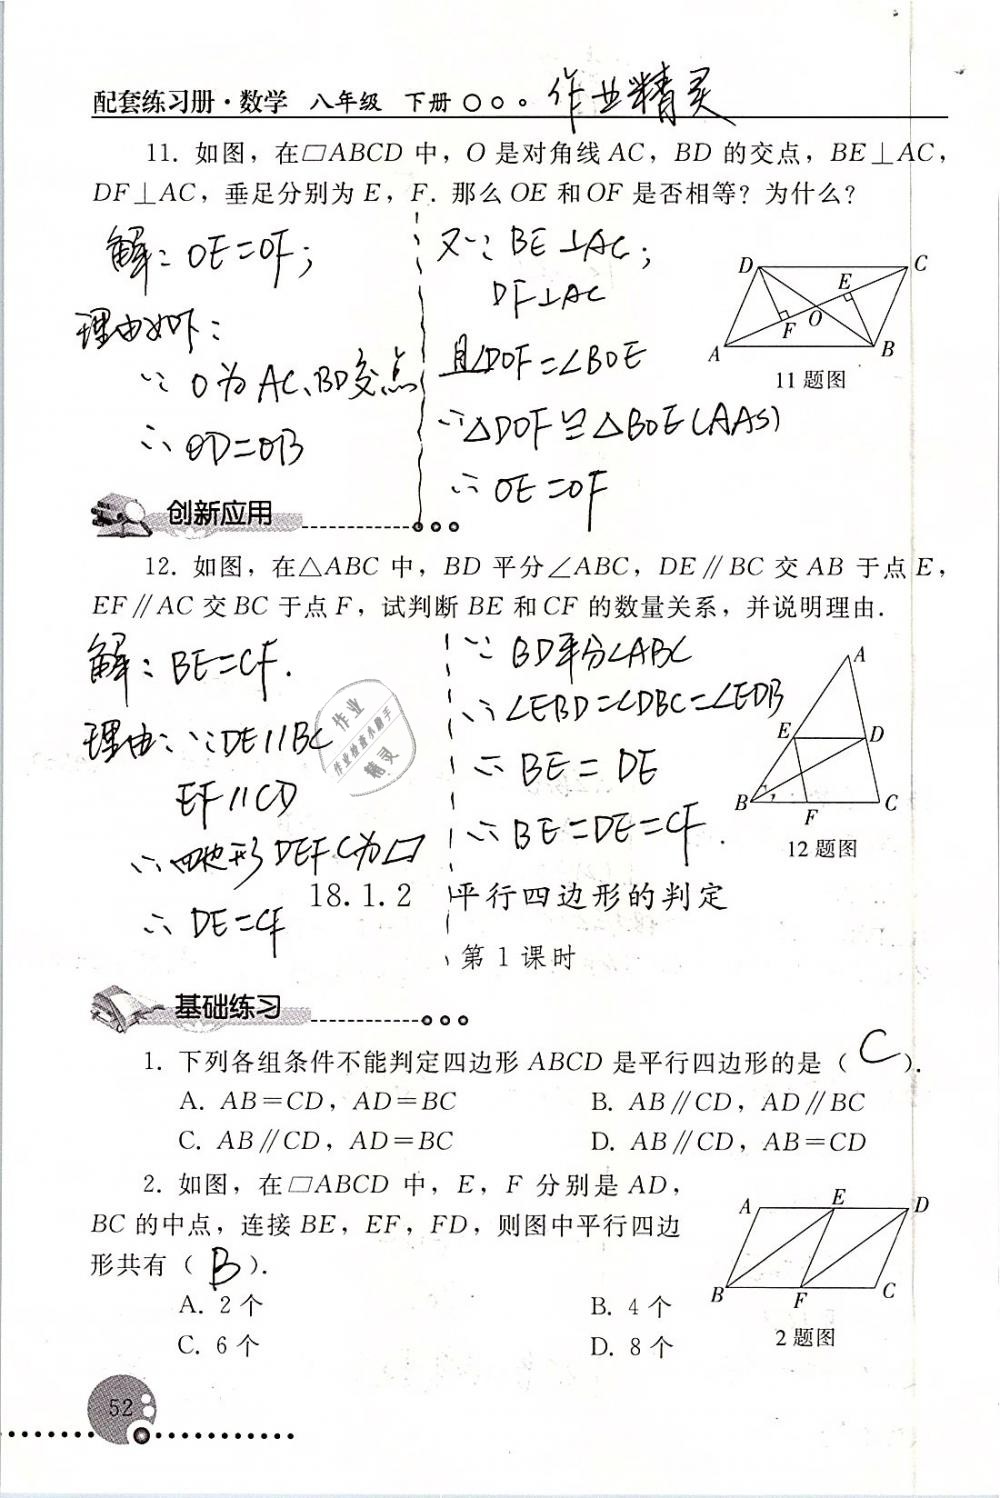 配套练习册·数学 八年级 下册 作业精灵
11. 如图，在▱ABCD 中，O 是对角线 AC，BD 的交点，BE⊥AC，
DF⊥AC，垂足分别为 E，F. 那么 OE 和 OF 是否相等？为什么？
解：OE=OF；
理由如下：
∵ O为AC、BD交点
∴ OD=OB
又∵ BE⊥AC；
DF⊥AC
且∠DOF=∠BOE
∴△DOF≌△BOE(AAS)
∴ OE=OF
D
C
E
O
F
A
B
11 题图
创新应用
12. 如图，在△ABC 中，BD 平分∠ABC，DE∥BC 交 AB 于点 E，
EF∥AC 交 BC 于点 F，试判断 BE 和 CF 的数量关系，并说明理由.
解：BE=CF.
理由：∵DE//BC
EF//CD
∴四边形DEFC为▱
∴ DE=CF
∵ BD平分∠ABC
∴∠EBD=∠DBC=∠EDB
∴ BE=DE
∴ BE=DE=CF.
作业
作业检查小助手
精灵
A
E
D
B
F
C
12 题图
18.1.2 平行四边形的判定
第 1 课时
基础练习
1. 下列各组条件不能判定四边形 ABCD 是平行四边形的是（ C ）.
A. AB=CD，AD=BC B. AB∥CD，AD∥BC
C. AB∥CD，AD=BC D. AB∥CD，AB=CD
2. 如图，在▱ABCD 中，E，F 分别是 AD，
BC 的中点，连接 BE，EF，FD，则图中平行四边
形共有（ B ）.
A. 2 个 B. 4 个
C. 6 个 D. 8 个
A
E
D
B
F
C
2 题图
52